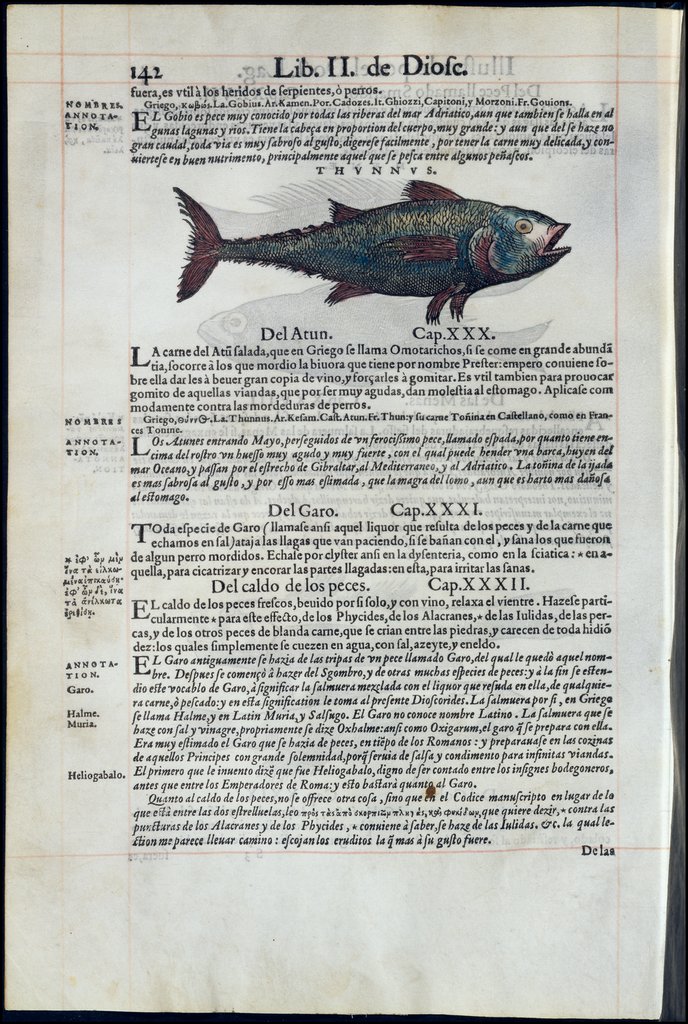 142 Lib. II. de Diosc.
fuera, es vtil à los heridos de serpientes, ò perros.
NOMBRES. Griego, κωβιὸς. La. Gobius. Ar. Kamen. Por. Cadozes. It. Ghiozzi, Capitoni, y Morzoni. Fr. Gouions.
ANNOTA- EL Gobio es pece muy conocido por todas las riberas del mar Adriatico, aun que tambien se halla en al
TION. gunas lagunas y rios. Tiene la cabeça en proportion del cuerpo, muy grande: y aun que del se haze no
gran caudal, toda via es muy sabroso al gusto, digerese facilmente, por tener la carne muy delicada, y con-
uiertese en buen nutrimento, principalmente aquel que se pesca entre algunos peñascos.
THVNNVS.
Del Atun. Cap. XXX.
LA carne del Atũ salada, que en Griego se llama Omotarichos, si se come en grande abundã
tia, socorre à los que mordio la biuora que tiene por nombre Prester: empero conuiene so-
bre ella dar les à beuer gran copia de vino, y forçarles à gomitar. Es vtil tambien para prouocar
gomito de aquellas viandas, que por ser muy agudas, dan molestia al estomago. Aplicase com
modamente contra las mordeduras de perros.
NOMBRES Griego, θύννος. La. Thunnus. Ar. Kesam. Cast. Atun. Fr. Thun; y su carne Toñina en Castellano, como en Fran-
ces Tonine.
ANNOTA- LOs Atunes entrando Mayo, perseguidos de vn ferocissimo pece, llamado espada, por quanto tiene en-
TION. cima del rostro vn huesso muy agudo y muy fuerte, con el qual puede hender vna barca, huyen del
mar Oceano, y passan por el estrecho de Gibraltar, al Mediterraneo, y al Adriatico. La toñina de la ijada
es mas sabrosa al gusto, y por esso mas estimada, que la magra del lomo, aun que es harto mas dañosa
al estomago.
Del Garo. Cap. XXXI.
TOda especie de Garo (llamase ansi aquel liquor que resulta de los peces y de la carne que
echamos en sal) ataja las llagas que van paciendo, si se bañan con el, y sana los que fueron
de algun perro mordidos. Echase por clyster ansi en la dysenteria, como en la sciatica: * en a-
quella, para cicatrizar y encorar las partes llagadas: en esta, para irritar las sanas.
Del caldo de los peces. Cap. XXXII.
EL caldo de los peces frescos, beuido por si solo, y con vino, relaxa el vientre. Hazese parti-
cularmente * para este effecto, de los Phycides, de los Alacranes, * de las Iulidas, de las per-
cas, y de los otros peces de blanda carne, que se crian entre las piedras, y carecen de toda hidiõ
dez: los quales simplemente se cuezen en agua, con sal, azeyte, y eneldo.
ANNOTA- EL Garo antiguamente se hazia de las tripas de vn pece llamado Garo, del qual le quedò aquel nom-
TION. bre. Despues se començò à hazer del Sgombro, y de otras muchas especies de peces: y à la fin se esten-
Garo. dio este vocablo de Garo, à significar la salmuera mezclada con el liquor que resuda en ella, de qualquie-
ra carne, ò pescado: y en esta signification le toma al presente Dioscorides. La salmuera por si, en Griego
Halme. se llama Halme, y en Latin Muria, y Salsugo. El Garo no conoce nombre Latino. La salmuera que se
Muria. haze con sal y vinagre, propriamente se dize Oxhalme: ansi como Oxigarum, el garo q̃ se prepara con ella.
Era muy estimado el Garo que se hazia de peces, en tiẽpo de los Romanos: y preparauase en las cozinas
de aquellos Principes con grande solemnidad, porq̃ seruia de salsa y condimento para infinitas viandas.
Heliogabalo. El primero que le inuento dizẽ que fue Heliogabalo, digno de ser contado entre los insignes bodegoneros,
antes que entre los Emperadores de Roma: y esto bastarà quanto al Garo.
Quanto al caldo de los peces, no se offrece otra cosa, sino que en el Codice manuscripto en lugar de lo
que està entre las dos estrelluelas, leo que quiere dezir, * contra las
puncturas de los Alacranes y de los Phycides, * conuiene à saber, se haze de las Iulidas. &c. la qual le-
ction me parece lleuar camino: escojan los eruditos la q̃ mas à su gusto fuere.
De las